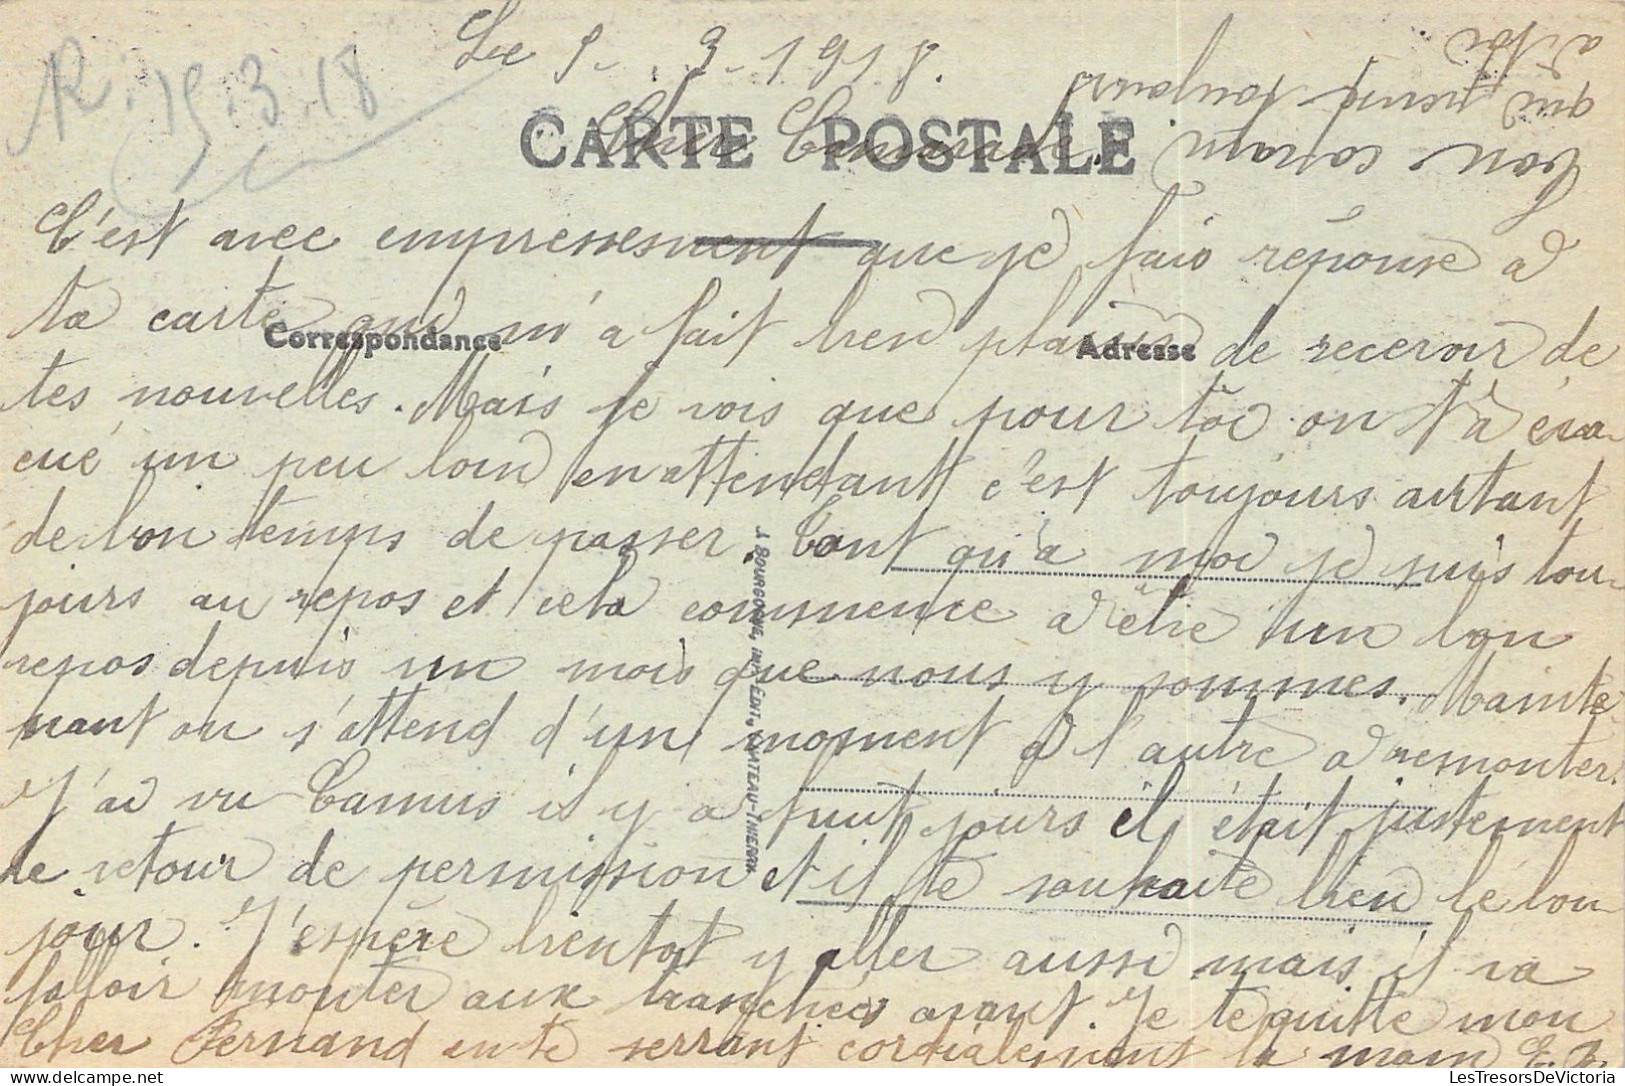 Le 5-.3.1918.
R. 15.3.18
CARTE POSTALE
Cher Camarade.
C'est avec empressement que je fais réponse a
ta carte qui m'a fait bien plaisir de recevoir de
Correspondance
Adresse
tes nouvelles. Mais je vois que pour toi on t'a éva-
cué un peu loin en attendant c'est toujours autant
de bon temps de passer, Tant qu'a moi je suis tou-
jours au repos et cela commence a être un bon
repos depuis un mois que nous y sommes. Mainte-
nant on s'attend d'un moment a l'autre a remonter.
J'ai vu Camus il y a huit jours il était justement
de retour de permission et il te souhaite bien le bon-
jour. J'espère bientot y aller aussi mais il va
falloir monter aux tranchées avant. Je te quitte mon
Cher Fernand en te serrant cordialement la main
Ton copain
qui pense toujours
a toi
J. BOURGOGNE, IMP. EDIT., CHATEAU-THIERRY
LesTresorsDeVictoria